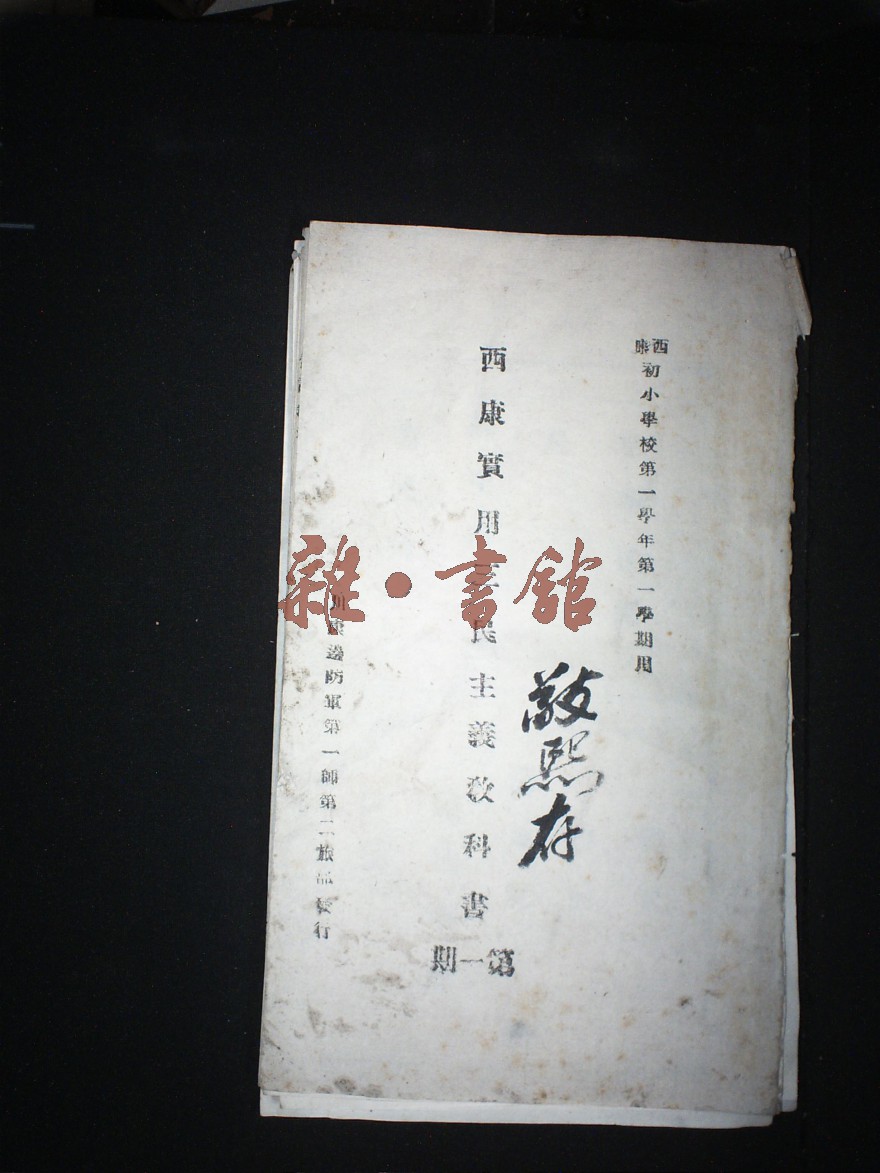 西康初小學校第一學年第一學期用
西康實用三民主義教科書
第一期
敬熙存
邊防軍第一師第二旅部發行
雜·書館